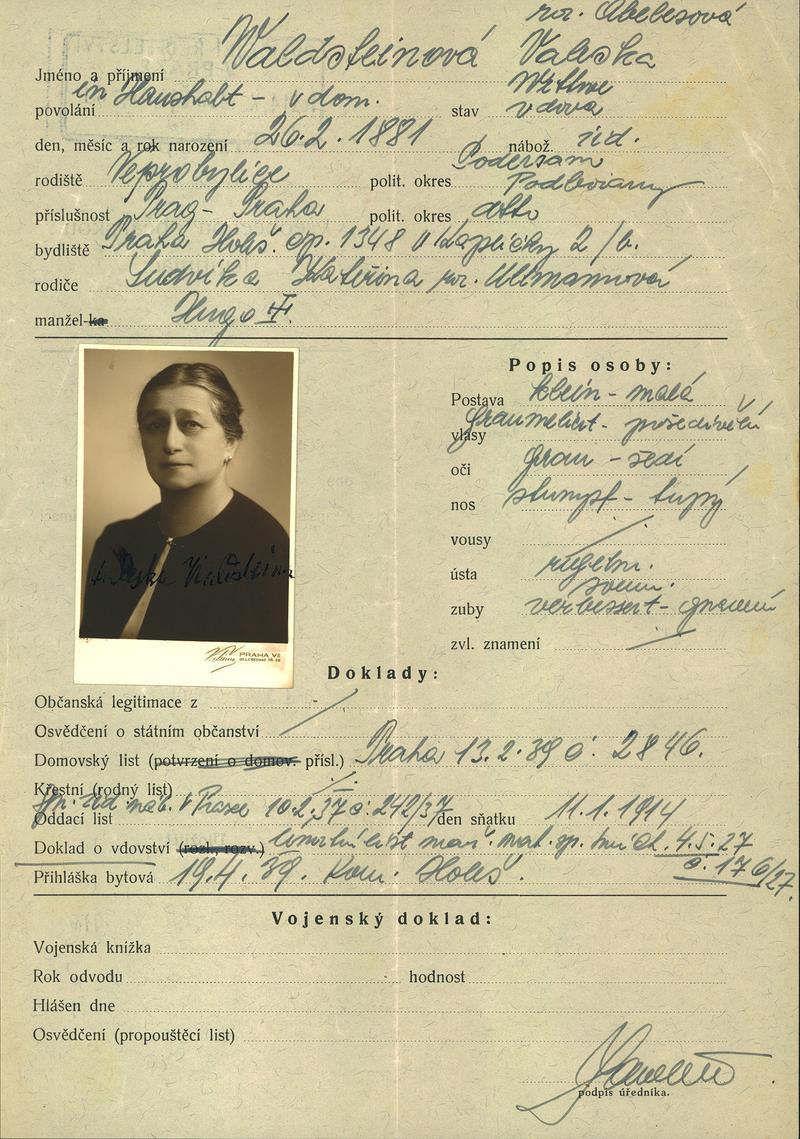 roz. Abelesová
Waldsteinová Valeska
Jméno a příjmení
in Haushalt - v dom. Witwe
povolání stav vdova
den, měsíc a rok narození 26.2.1881 nábož. žid.
Podersam
rodiště Veprobylice polit. okres Podbořany
příslušnost Prag - Praha polit. okres dtto
bydliště Praha Holeš. čp. 1348 U Kapličky 2/b.
rodiče Ludvíka Kateřina roz. Ullmannová
manžel-ka Hugo
Popis osoby:
Postava klein - malá
vlasy graumeliert - prošedivělé
oči grau - šedé
nos stumpf - tupý
vousy
ústa regelm.
soum.
zuby verbessert -
zvl. znamení
Valeska Waldsteinová
PRAHA VII
Doklady:
Občanská legitimace z
Osvědčení o státním občanství
Domovský list (potvrzení o domov. přísl.) Praha 13.2.39 č: 2846.
Křestní (rodný list)
žid. náb. v Praze 10.2.37 č: 242/37
Oddací list den sňatku 11.1.1914
Doklad o vdovství (rozl., rozv.) úmrtní list 4.5.27
č. 176/27.
Přihláška bytová 19.4.39. Kom. Holeš.
Vojenský doklad:
Vojenská knížka
Rok odvodu hodnost
Hlášen dne
Osvědčení (propouštěcí list)
podpis úředníka.